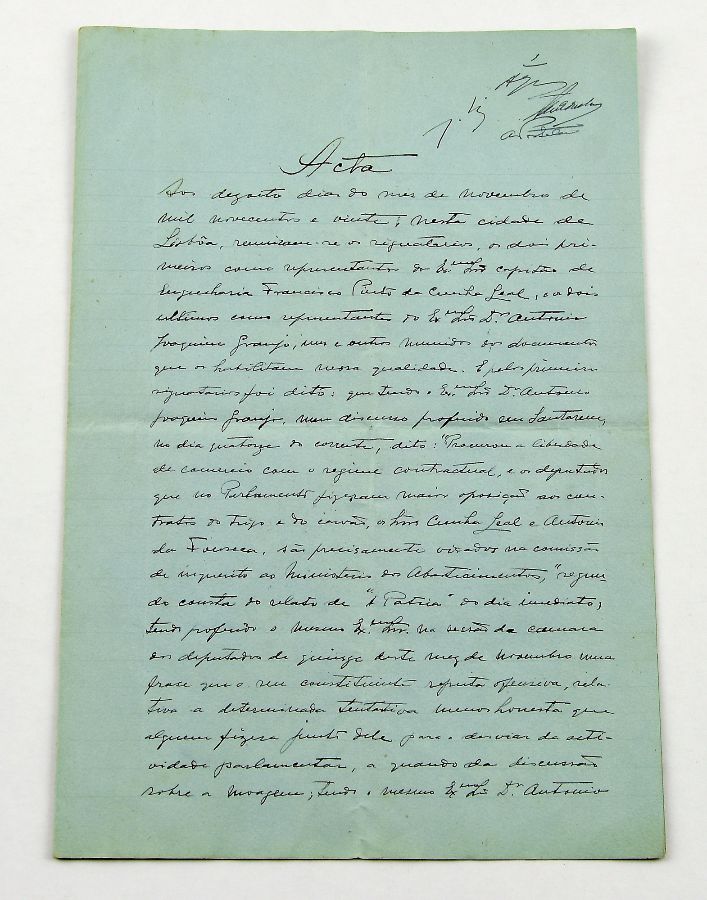 Acta
Aos dezoito dias do mez de Novembro de
mil novecentos e vinte; nesta cidade de
Lisbôa, reuniram-se os signatarios, os dois pri-
meiros como representantes do Ex.mo Snr. capitão de
Engenharia Francisco Pinto da Cunha Leal, e os dois
ultimos como representantes do Ex.mo Snr. Dr. Antonio
Joaquim Granjo, uns e outros munidos dos documentos
que os habilitam nessa qualidade. E pelos primeiros
signatarios foi dito: que tendo o Ex.mo Snr. Dr. Antonio
Joaquim Granjo, num discurso proferido em Santarem,
no dia quatorze do corrente, dito: "Procurou a liberdade
de comercio com o regime contractual, e os deputados
que no Parlamento fizeram maior oposição aos con-
tratos do trigo e do carvão, os Snrs. Cunha Leal e Antonio
da Fonseca, são precisamente visados na comissão
de inquerito ao Ministerio dos Abastecimentos," segun-
do consta do relato de "A Patria" do dia imediato;
tendo proferido o mesmo Ex.mo Snr. na secção da camara
dos deputados de quinze deste mez de Novembro uma
frase que o seu constituinte reputa ofensiva, rela-
tiva a determinada tentativa menos honesta que
alguem fizera junto dele para o desviar da acti-
vidade parlamentar, a quando da discussão
sobre a moagem; tendo o mesmo Ex.mo Snr. Dr. Antonio